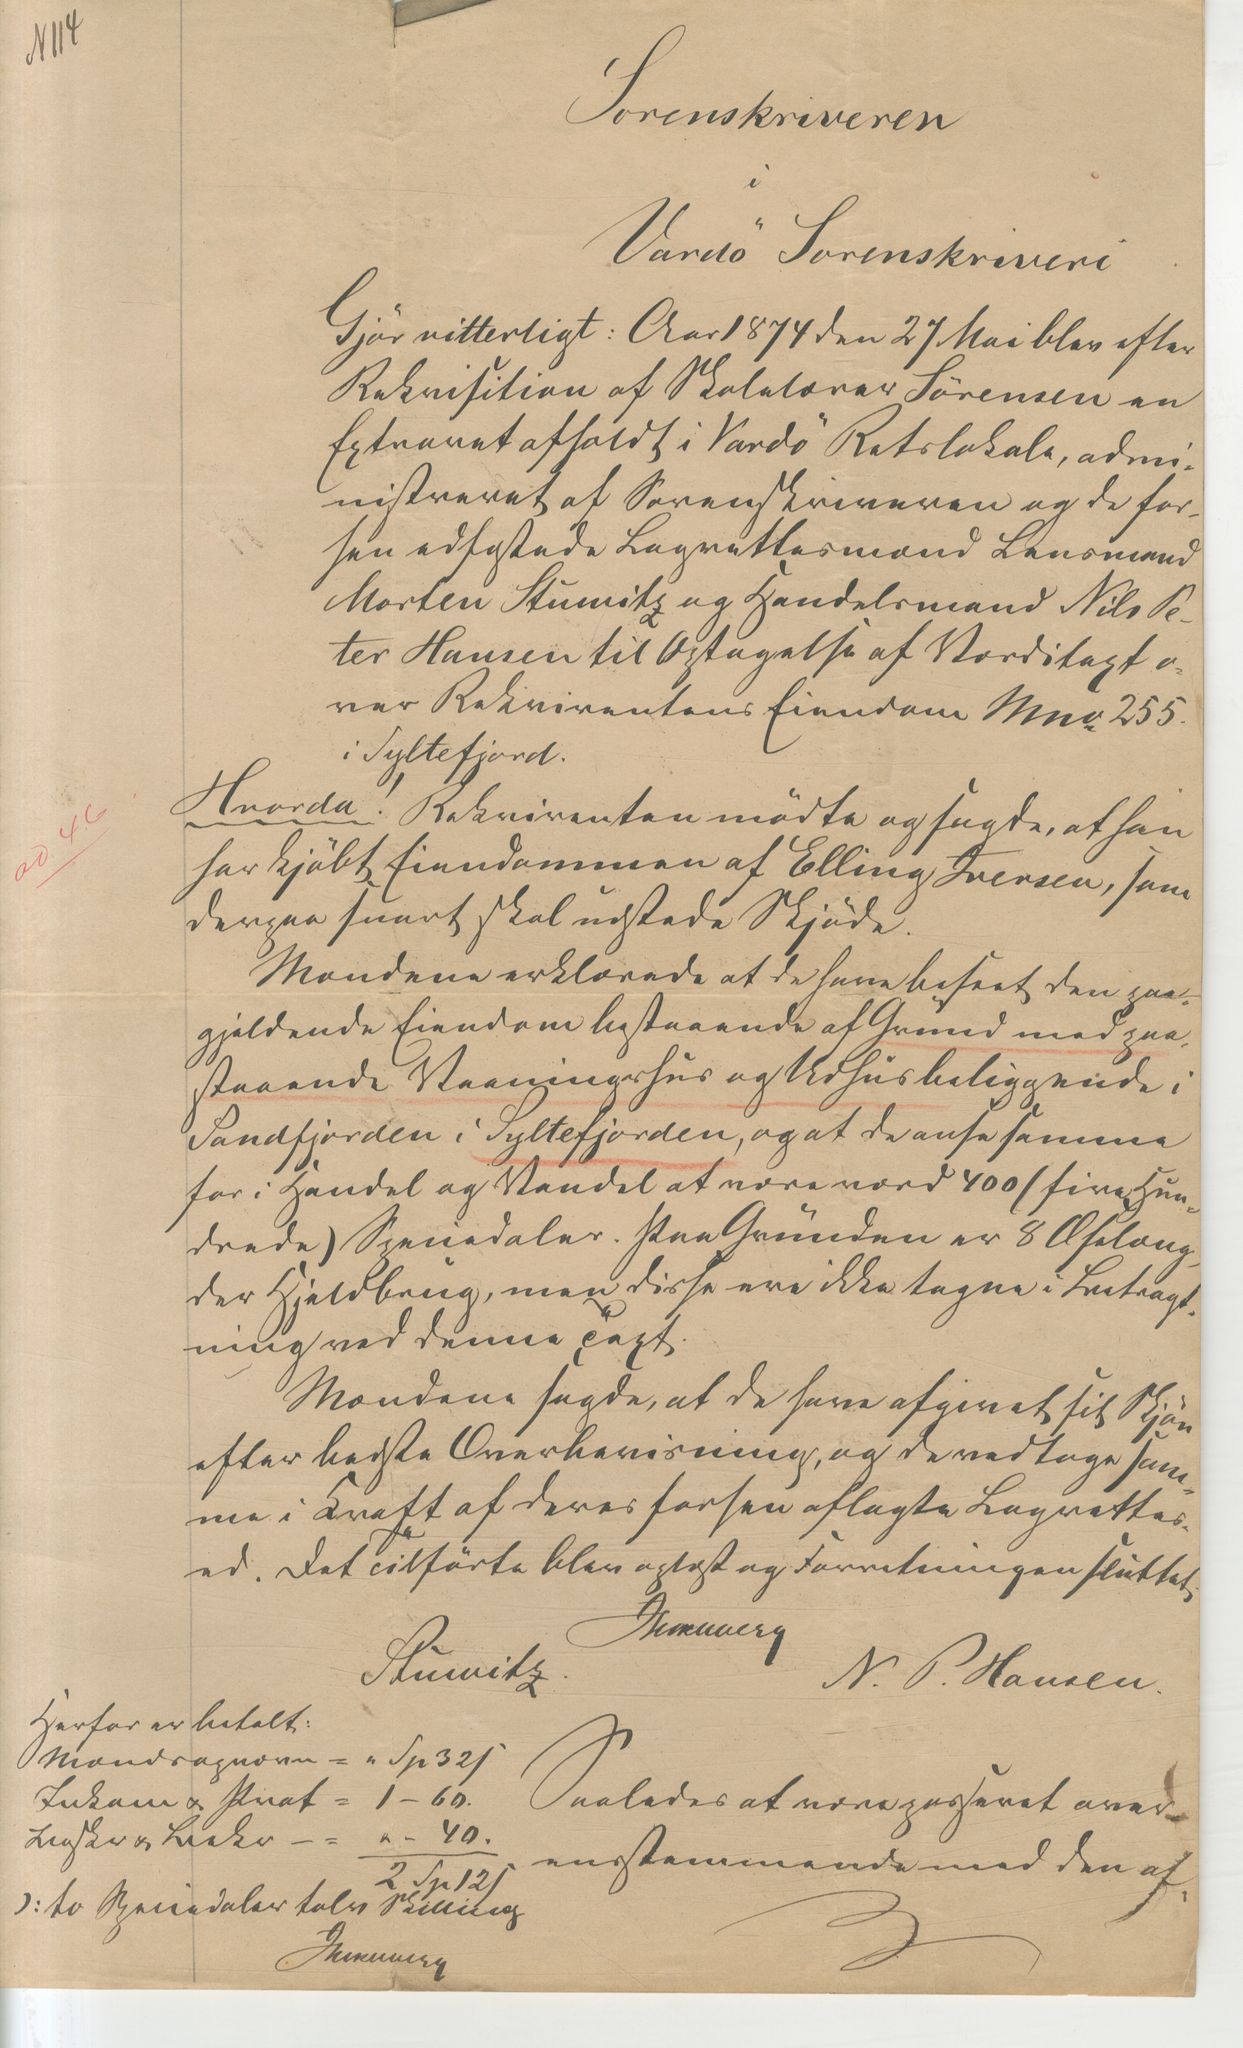 N 114
Sorenskriveren
i
Vardö Sorenskriveri
Gjör vitterligt: Aar 1874 den 27 Mai blev efter
Rekvisition af Skolelærer Sörensen en
Extraret afholdt i Vardö Retslokale, admi-
nistreret af Sorenskriveren og de for-
hen edfæstede Lagrettesmænd Lensmand
Morten Stuwitz og Handelsmand Nils Pe-
ter Hansen til Optagelse af Værditaxt o-
ver Rekvirentens Eiendom Mno 255.
i Syltefjord.
Hvorda! Rekvirenten mödte og sagde, at han
har kjöbt Eiendommen af Elling Iversen, som
derpaa snart skal udstede Skjöde.
Mændene erklærede at de have beseet den paa-
gjeldende Eiendom bestaaende af Grund med paa-
staaende Vaaningshus og Udhus beliggende i
Sandfjorden i Syltefjorden, og at de anse samme
for i Handel og Vandel at være værd 400 (fire Hun-
drede) Speciedaler. Paa Grunden er 8 Ofelæng-
der Hjeldbrug, men disse ere ikke tagne i Betragt-
ning ved denne Taxt.
Mændene sagde, at de have afgivet sit Skjön
efter bedste Overbevisning, og de vedtage sam-
me i Kraft af deres forhen aflagte Lagrettes-
ed. Det Tilförte blev oplæst og Forretningen sluttet.
Stuwitz.
N. P. Hansen.
Herfor er betalt:
Mændsopnævn = " Sp 32 s
Inkam & Prot = 1 - 60.
- = " - 40.
2 Sp 12 s
): to Speciedaler tolv Skilling
Saaledes at være passeret over-
ensstemmende med den af-